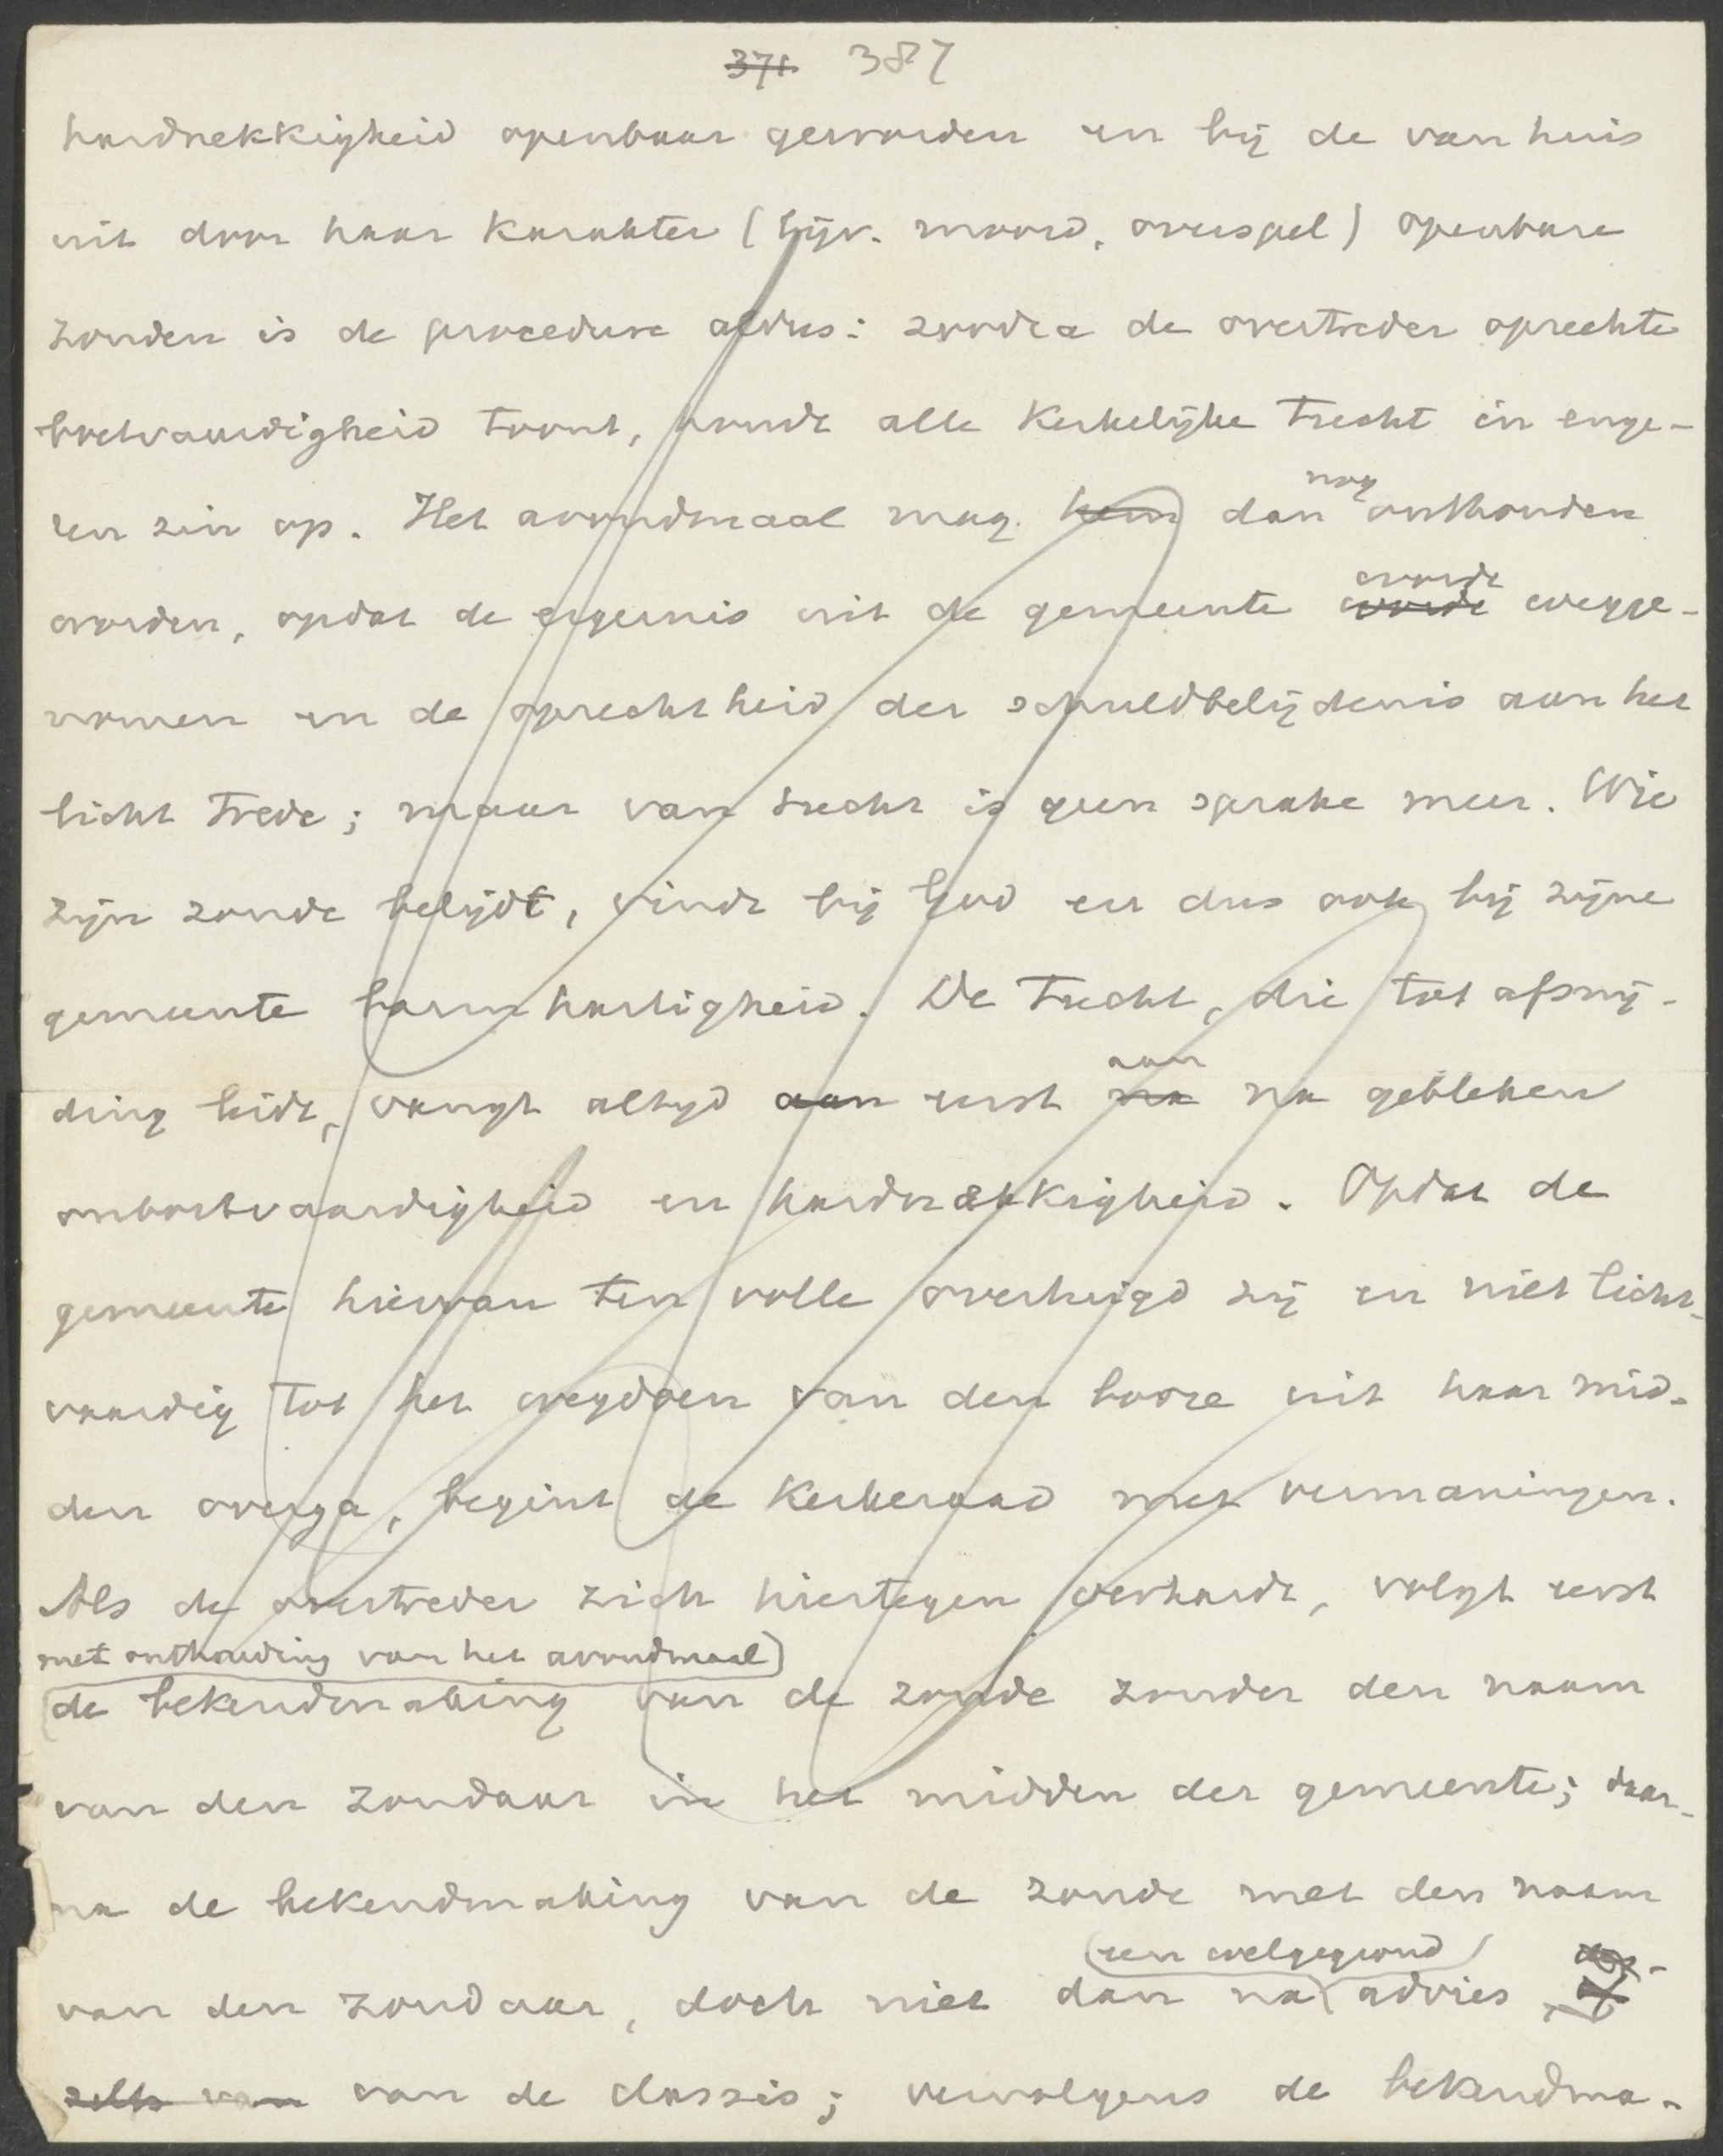 371 387
hardnekkigheid openbaar geworden en bij de van huis
uit door haar karakter (bijv. moord, overspel) openbare
zonden is de procedure aldus: zoodra de overtreder oprechte
boetvaardigheid toont, houdt alle kerkelijke tucht in enge-
ren zin op. Het avondmaal mag hem dan nog onthouden
worden, opdat de ergernis uit de gemeente worde worde wegge-
nomen en de oprechtheid der schuldbelijdenis aan het
licht trede; maar van tucht is geen sprake meer. Wie
zijn zonde belijdt, vindt bij God en dus ook bij zijne
gemeente barmhartigheid. De tucht, die tot afsnij-
ding leidt, vangt altijd aan eerst na aan na gebleken
onboetvaardigheid en hardnekkigheid. Opdat de
gemeente hiervan ten volle overtuigd zij en niet licht-
vaardig tot het wegdoen van den booze uit haar mid-
den overga, begint de kerkeraad met vermaningen.
Als de overtreder zich hiertegen verhardt, volgt eerst
met onthouding van het avondmaal
de bekendmaking van de zonde zonder den naam
van den zondaar in het midden der gemeente; daar-
na de bekendmaking van de zonde met den naam
van den zondaar, doch niet dan na een welgegrond advies
zelfs van van de classis; vervolgens de bekendma-